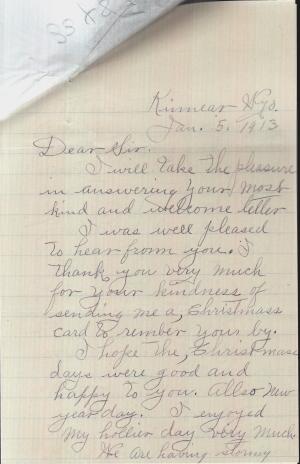 Kinnear Wyo.
Jan. 5, 1913
Dear Sir.
I will take the pleasure
in answering your most
kind and welcome letter
I was well pleased
to hear from you. I
thank you very much
for your kindness of
sending me a, Christmass
card to rember your by.
I hope the, Christmass
days were good and
happy to you. Allso new
year day. I enjoyed
my hollier day very much.
We are having stormy